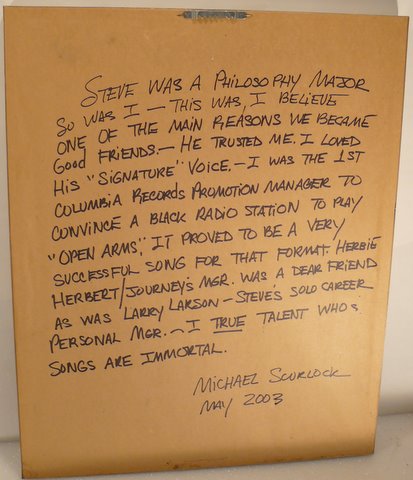 Steve was a Philosophy Major
So was I – This was, I believe
one of the main reasons we became
good friends. – He trusted me. I loved
his "signature" voice. – I was the 1st
Columbia Records Promotion Manager to
convince a black radio station to play
"Open Arms". It proved to be a very
successful song for that format. Herbie
Herbert/Journey's Mgr. was a dear friend
as was Larry Larson – Steve's solo career
personal Mgr. – I true talent who's
songs are immortal.
Michael Scurlock
May 2003